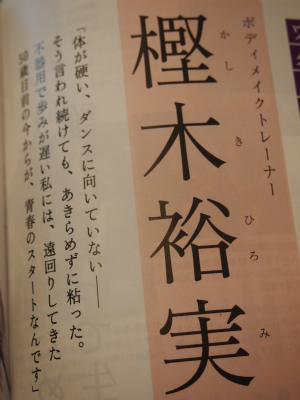 ボディメイクトレーナー
樫木裕実
かしきひろみ
「体が硬い、ダンスに向いていない――
そう言われ続けても、あきらめずに粘った。
不器用で歩みが遅い私には、遠回りしてきた
50歳目前の今からが、青春のスタートなんです」